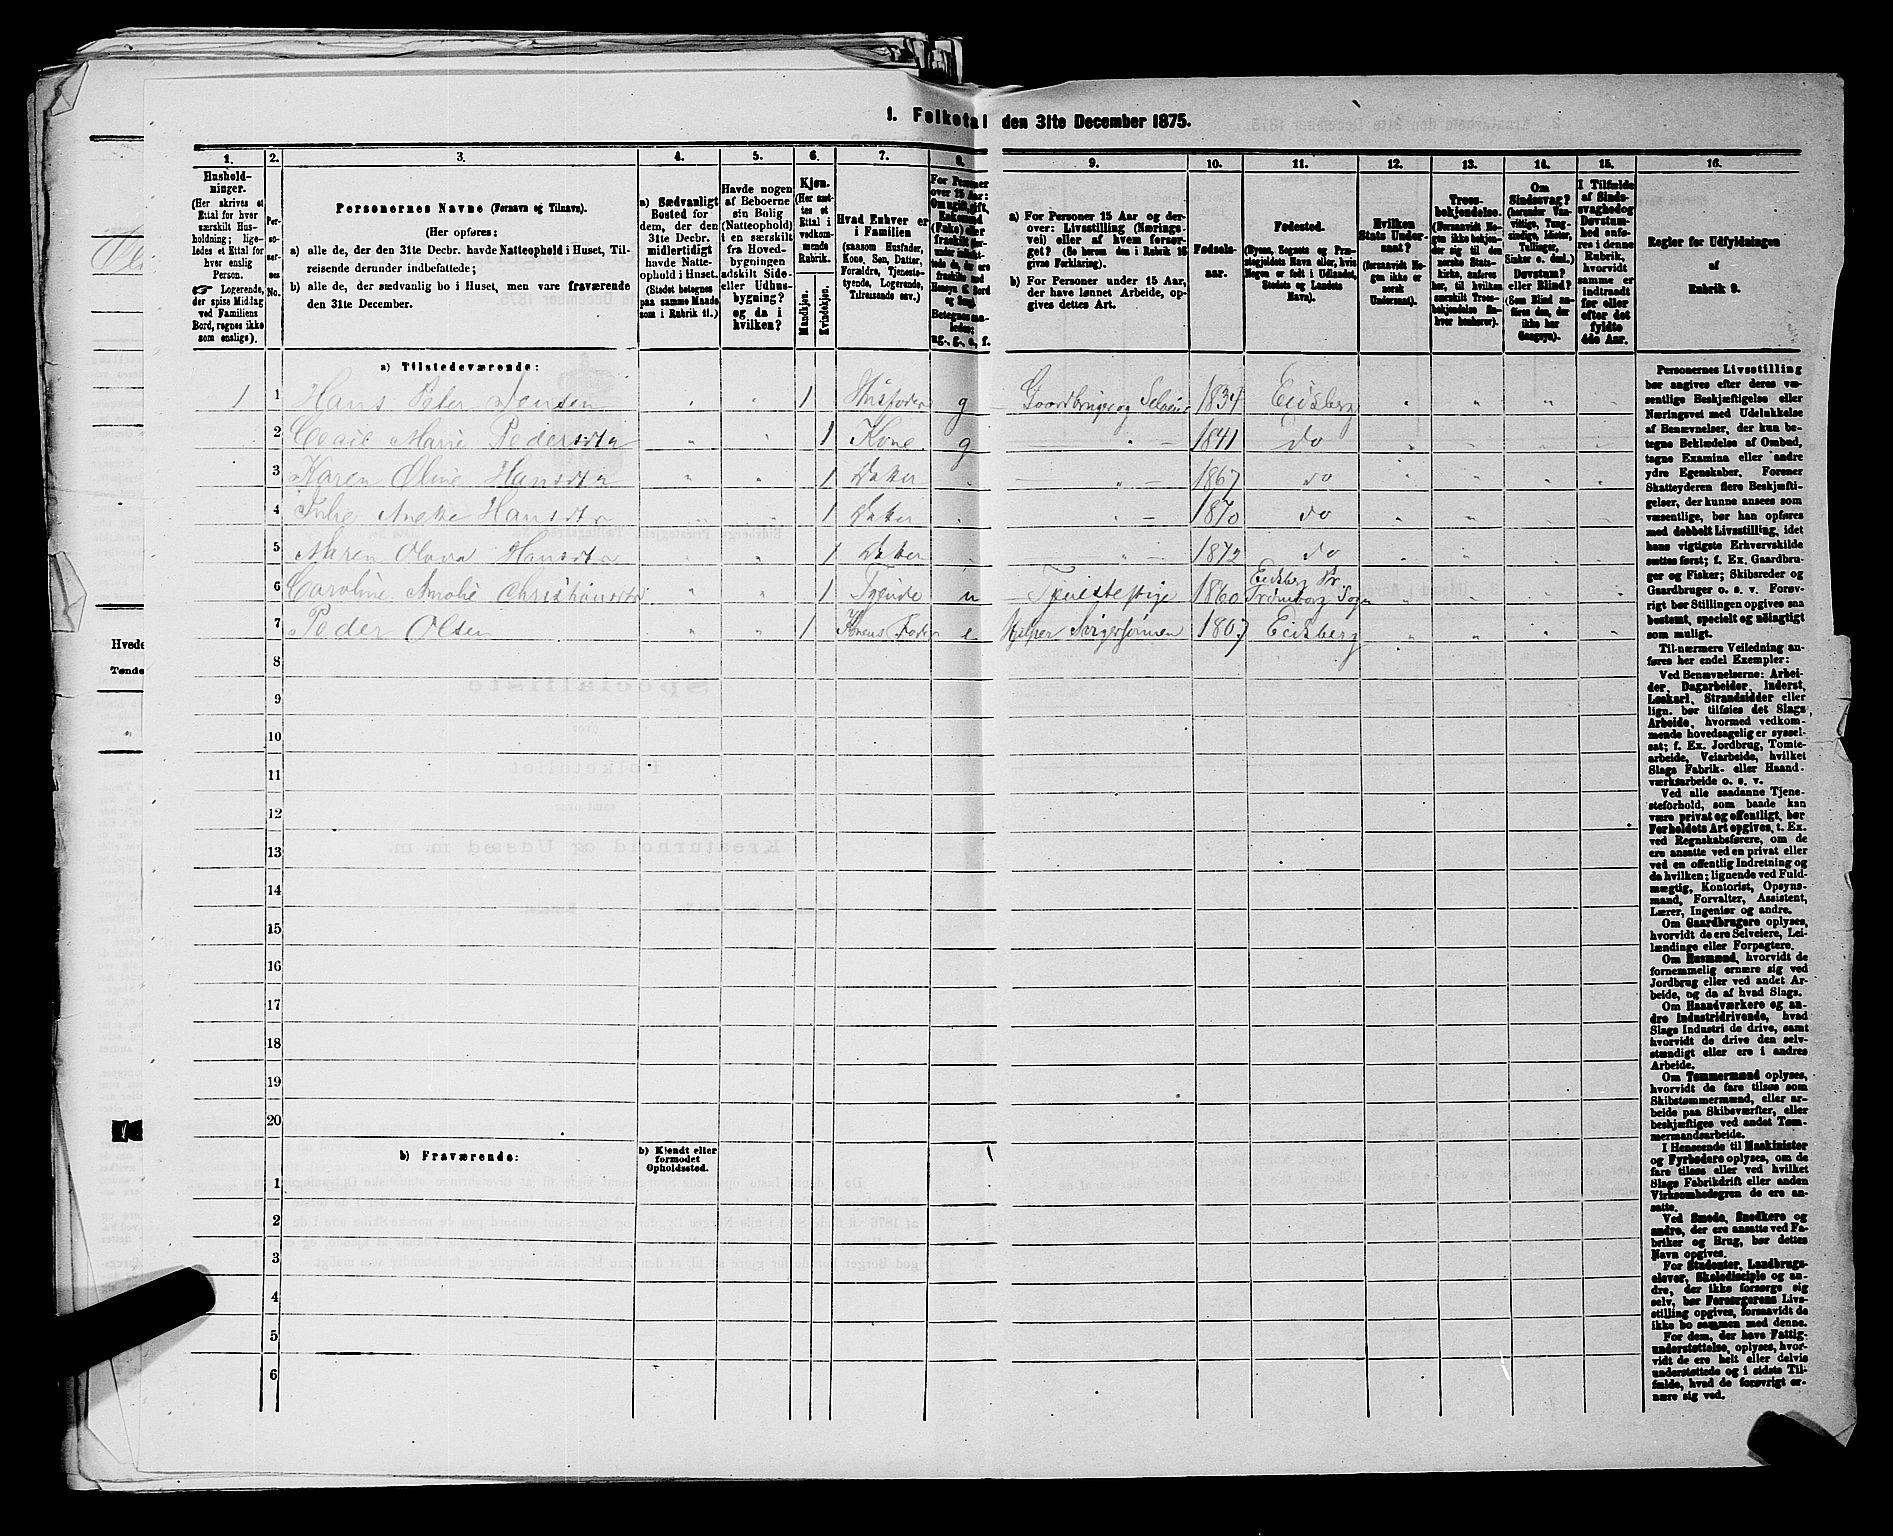 1. Folketal den 31te December 1875.
1.
2.
3.
4.
5.
6.
7.
8.
9.
10.
11.
12.
13.
14.
15.
16.
Hushold-
ninger.
(Her skrives et
Ettal for hver
særskilt Hus-
holdning; lige-
ledes et Ettal for
hver enslig
Person.
☛ Logerende,
der spise Middag
ved Familiens
Bord, regnes ikke
som enslige).
Per-
so-
ner-
nes
No.
Personernes Navne (Fornavn og Tilnavn).
(Her opføres:
a) alle de, der den 31te Decbr. havde Natteophold i Huset, Til-
reisende derunder indbefattede;
b) alle de, der sædvanlig bo i Huset, men vare fraværende
den 31te December.
a) Sædvanligt
Bosted for
dem, der den
31te Decbr.
midlertidigt
havde Natte-
ophold i Huset.
(Stedet betegnes
paa samme Maade
som i Rubrik 11.)
Havde nogen
af Beboerne
sin Bolig
(Natteophold)
i en særskilt
fra Hoved-
bygningen
adskilt Side-
eller Udhus-
bygning?
og da i
hvilken?
Kjøn.
(Her sæt-
tes et
Ettal i
vedkom-
mende
Rubrik.
Mandkjøn.
Kvindekjøn.
Hvad Enhver er
i Familien
(saasom Husfader,
Kone, Søn, Datter,
Forældre, Tjeneste-
tyende, Logerende,
Tilreisende osv.)
For Personer
over 15 Aar:
ug., g., e., f.
a) For Personer 15 Aar og der-
over: Livsstilling (Nærings-
vei) eller af hvem forsør-
get? (Se herom den i Rubrik 16
givne Forklaring).
b) For Personer under 15 Aar,
der have lønnet Arbeide, op-
gives dettes Art.
Fødsels-
aar.
Fødested.
(Byens, Sognets og Præ-
stegjeldets Navn eller, hvis
Nogen er født i Udlandet,
Stedets og Landets
Navn).
Hvilken
Stats Under-
saat?
(forsaavidt No-
gen ikke er
norsk
Undersaat).
Troes-
bekjendelse.
(Forsaavidt No-
gen ikke bekjen-
der sig til den
norske Stats-
kirke, anføres
her, til hvilken
særskilt Troes-
bekjendelse En-
hver henhører).
Om
Sindssvag?
(herunder Van-
vittige, Tung-
sindige, Idioter,
Tullinger,
Sinker o. desl.)
Døvstum?
eller Blind?
(Som Blind an-
føres den, der
ikke har
Gangsyn).
I Tilfælde
af Sinds-
svaghed og
Døvstum-
hed anfø-
res i denne
Rubrik,
hvorvidt
samme er
indtraadt
før eller
efter det
fyldte
4de Aar.
Regler for Udfyldningen
af
Rubrik 9.
a) Tilstedeværende:
1 1 Hans Peter Jensen 1 Husfader g Gaardbruger og Selveier 1834 Eidsberg
2 Marie Pedersdtr 1 Kone g 1841 do
3 Karen Oline Hansdtr 1 Datter 1867 do
4 Julie Anette Hansdtr 1 Datter 1870 do
5 Maren Olava Hansdtr 1 Datter 1872 do
6 Caroline Amalie Christiansdtr 1 Tyende u Tjenestepige 1860 Eidsberg Pr. Trømborg Sogn
7 Peder Olsen 1 Konens Fader e Hjelper Svigersønnen 1807 Eidsberg
8
9
10
11
12
13
14
15
16
17
18
19
20
b) Fraværende:
b) Kjendt eller
formodet
Opholdssted.
1
2
3
4
5
6
Personernes Livsstilling
bør angives efter deres væ-
sentlige Beskjæftigelse eller
Næringsvei med Udelukkelse
af Benævnelser, der kun be-
tegne Beklædelse af Ombud,
tagne Examina eller andre
ydre Egenskaber. Forener
Skatteyderen flere Beskjæfti-
gelser, der kunne ansees som
væsentlige, bør han opføres
med dobbelt Livsstilling, idet
hans vigtigste Erhvervskilde
sættes først; f. Ex. Gaardbru-
ger og Fisker; Skibsreder og
Gaardbruger o. s. v. Forøv-
rigt bør Stillingen opgives saa
bestemt, specielt og nøiagtigt
som muligt.
Til nærmere Veiledning an-
føres her endel Exempler:
Ved Benævnelserne: Arbei-
der, Dagarbeider, Inderst,
Løskarl, Strandsidder eller
lign. bør tilføies det Slags
Arbeide, hvormed vedkom-
mende hovedsagelig er syssel-
sat; f. Ex. Jordbrug, Tomte-
arbeide, Veiarbeide, hvilket
Slags Fabrik- eller Haand-
værksarbeide o. s. v.
Ved alle saadanne Tjene-
steforhold, som baade kan
være privat og offentligt, bør
Forholdets Art opgives, t. Ex.
ved Regnskabsførere, om de
ere ansatte ved en privat eller
ved en offentlig Indretning og
da hvilken; lignende ved Fuld-
mægtig, Kontorist, Opsyns-
mand, Forvalter, Assistent,
Lærer, Ingeniør og andre.
Om Gaardbrugere oplyses,
hvorvidt de ere Selveiere, Lei-
lændinge eller Forpagtere.
Om Husmænd, hvorvidt de
fornemmelig ernære sig ved
Jordbrug eller ved andet Ar-
beide, og da af hvad Slags.
Om Haandværkere og an-
dre Industridrivende, hvad
Slags Industri de drive, samt
hvorvidt de drive den selv-
stændigt eller ere i andres
Arbeide.
Om Tømmermænd oplyses,
hvorvidt de fare tilsøs som
Skibstømmermænd, eller ar-
beide paa Skibsværfter, eller
beskjæftiges ved andet Tøm-
mermandsarbeide.
I Henseende til Maskinister
og Fyrbødere oplyses, om de
fare tilsøs eller ved hvilket
Slags Fabrikdrift eller anden
Virksomhedsgren de ere an-
satte.
Ved Smede, Snedkere og
andre, der ere ansatte ved Fa-
briker og Brug, bør dettes
Navn opgives.
For Studenter, Landbrugs-
elever, Skoledisciple og an-
dre, der ikke forsørge sig
selv, bør Forsørgerens Livs-
stilling opgives, forsaavidt de
ikke bo sammen med denne.
For dem, der have Fattig-
understøttelse, oplyses, hvor-
vidt de ere helt eller delvis
understøttede og i sidste Til-
fælde, hvad de forøvrigt er-
nære sig ved.
Hvede
Tønde